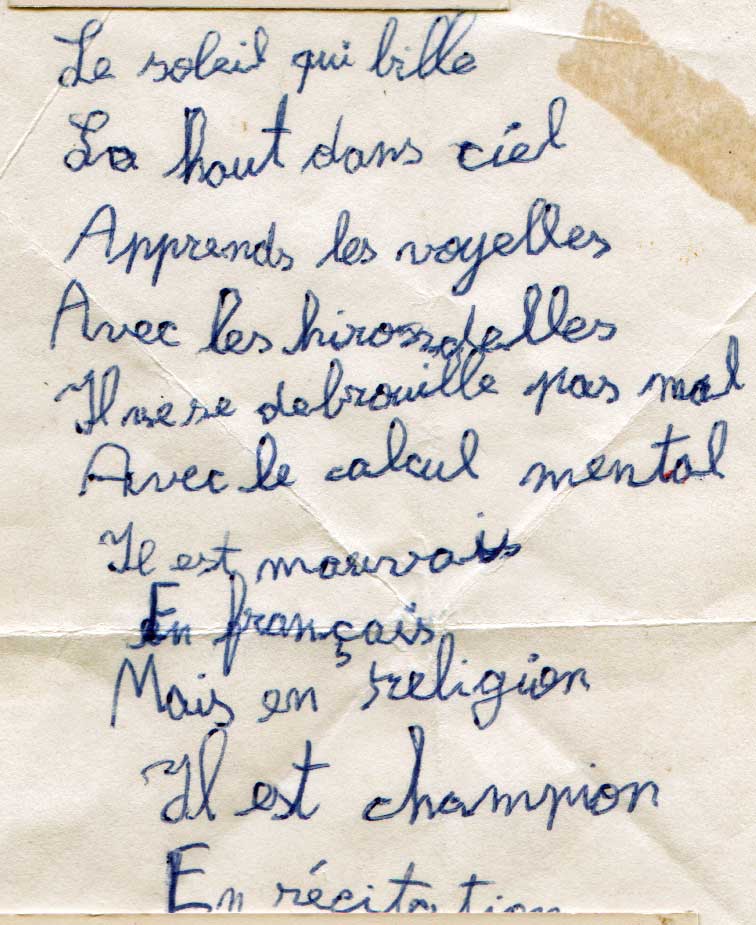 Le soleil qui bille
La haut dans ciel
Apprends les voyelles
Avec les hirossdelles
Il se debrouille pas mal
Avec le calcul mental
Il est mauvais
En français
Mais en religion
Il est champion
En récitation